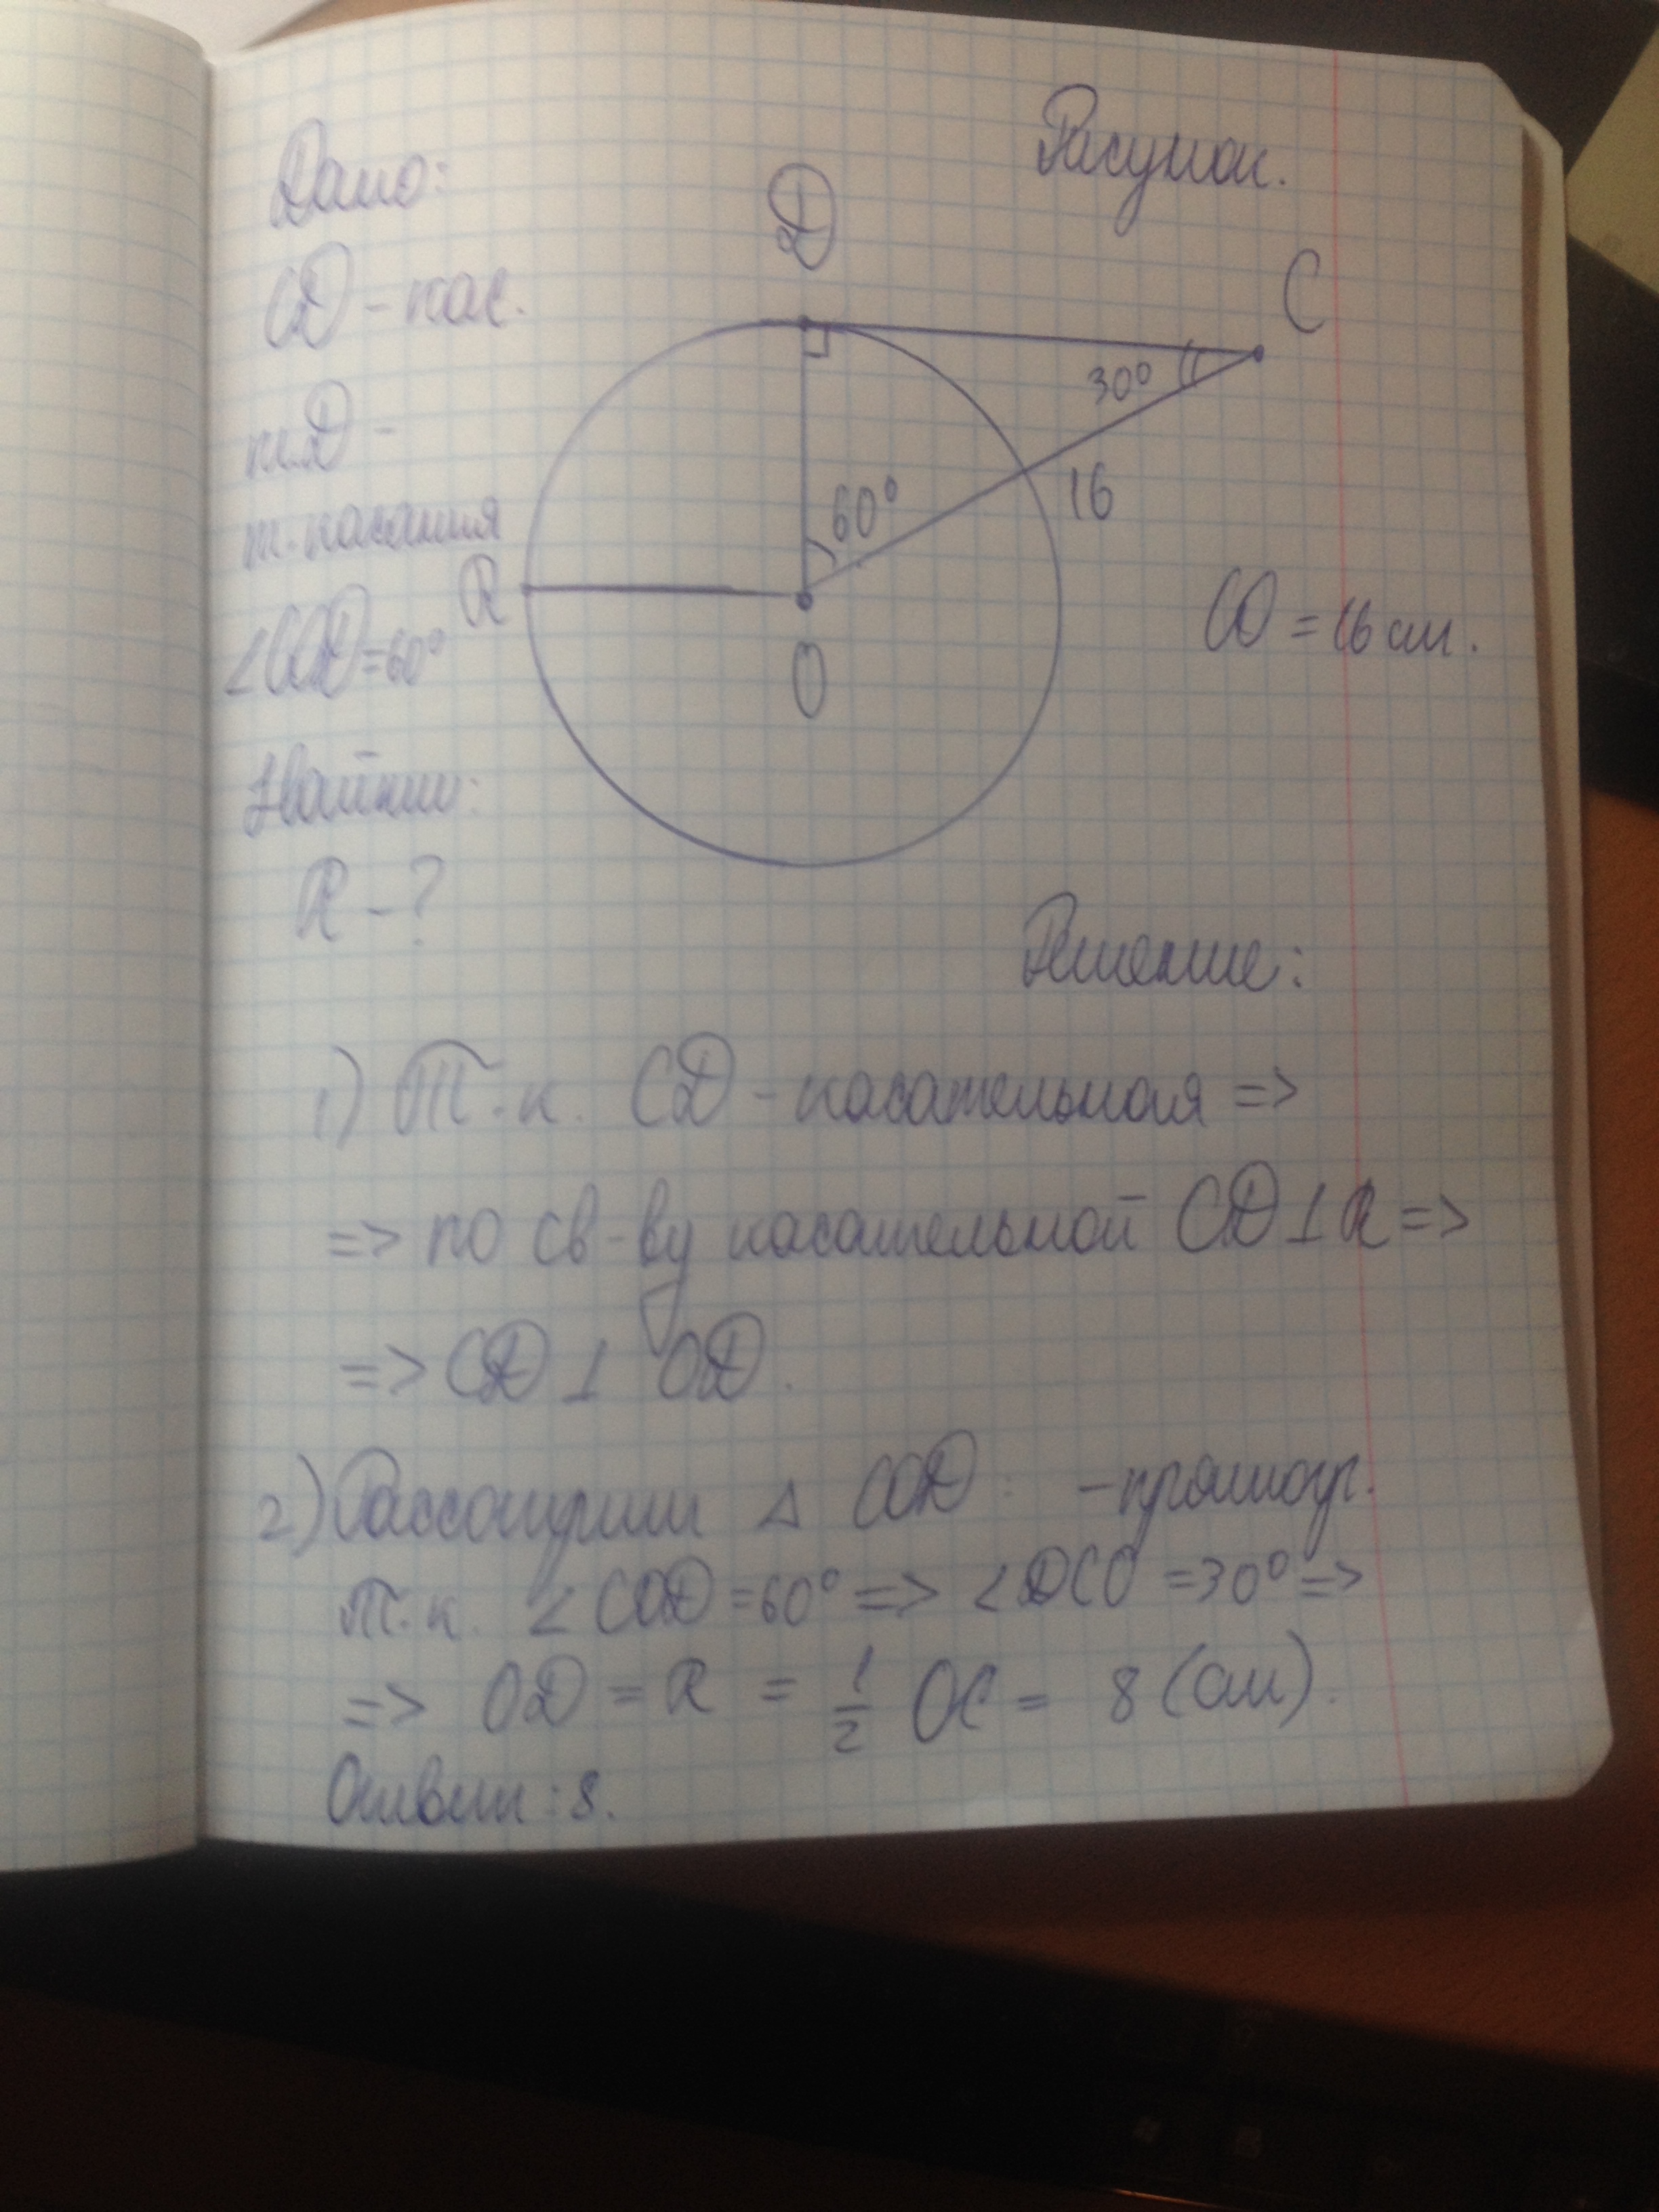 Дано:
Рисунок.
CD - кас.
т.D -
т. касания
∠COD=60°
Найти:
R - ?
D
C
30°
60°
16
R
O
CO = 16 см.
Решение:
1) Т.к. CD - касательная =>
=> по св-ву касательной CD ⊥ R =>
=> CD ⊥ OD.
2) Рассмотрим △ COD: - прямоуг.
т.к. ∠COD=60° => ∠DCO =30° =>
=> OD = R = 1/2 OC = 8 (см).
Ответ: 8.